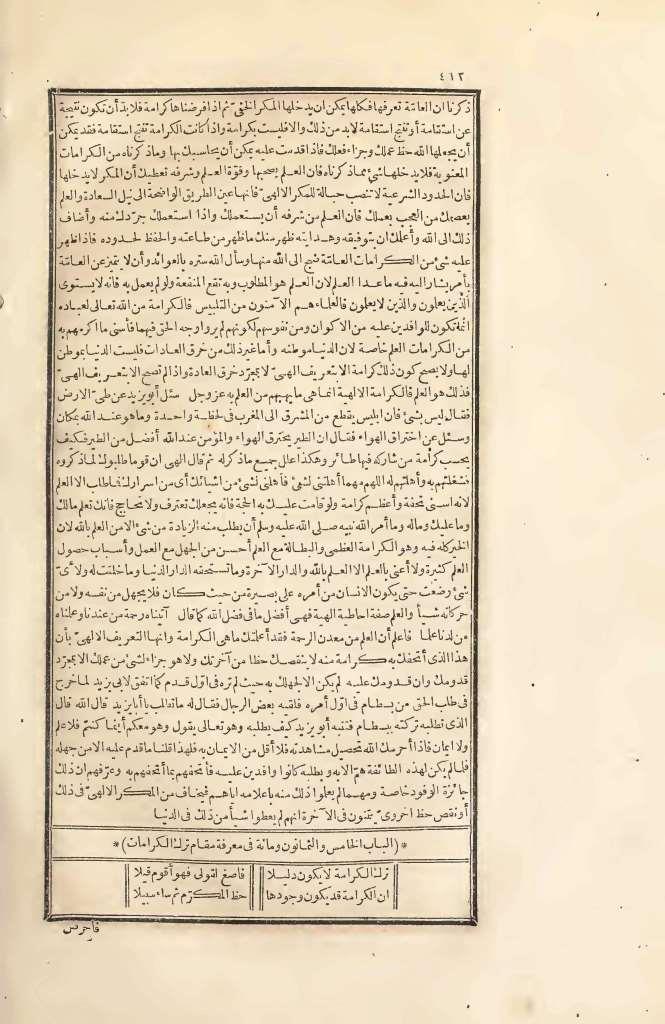 ٤١٢
ذكرنا ان العامّة تعرفها فكلها يمكن ان يدخلها المكر الخفيّ ثم اذا فرضناها كرامة فلابد أن تكون نتيجة
عن استقامة أو تنتج استقامة لابد من ذلك والا فليست بكرامة واذا كانت الكرامة تنتج استقامة فقد يمكن
أن يجعلها الله حظ عملك وجزاء فعلك فاذا قدمت عليه يمكن أن يحاسبك بها وما ذكرناه من الكرامات
المعنوية فلا يدخلها شئ مما ذكرناه فان العلم يصحبها وقوّة العلم وشرفه تعطيك أن المكر لا يدخلها
فان الحدود الشرعية لا تنصب حبالة للمكر الالهيّ فانها عين الطريق الواضحة الى نيل السعادة والعلم
يعصمك من العجب بعملك فان العلم من شرفه أن يستعملك واذا استعملك جرّدك منه وأضاف
ذلك الى الله وأعلمك ان بتوفيقه وهدايته ظهر منك ما ظهر من طاعته والحفظ لحدوده فاذا ظهر
عليه شئ من الكرامات العامّة ضج الى الله منها وسأل الله ستره بالعوائد وأن لا يتميز عن العامّة
بأمر يشار اليه فيه ما عدا العلم لان العلم هو المطلوب وبه تقع المنفعة ولو لم يعمل به فانه لا يستوى
الذين يعلمون والذين لا يعلمون فالعلماء هم الآمنون من التلبيس فالكرامة من الله تعالى لعباده
انما تكون للوافدين عليه من الاكوان ومن نفوسهم لكونهم لم يروا وجه الحق فيهما فأسنى ما اكرمهم به
من الكرامات العلم خاصة لان الدنيا موطنه وأما غير ذلك من خرق العادات فليست الدنيا بموطن
لها ولا يصح كون ذلك كرامة الا بتعريف الهيّ لا بمجرّد خرق العادة واذا لم تصح الا بتعريف الهيّ
فذلك هو العلم فالكرامة الالهية انما هى ما يهبهم من العلم به عز وجل سئل أبو يزيد عن طىّ الارض
فقال ليس بشئ فان ابليس يقطع من المشرق الى المغرب فى لحظة واحدة وما هو عند الله بمكان
وسئل عن اختراق الهواء فقال ان الطير يخترق الهواء والمؤمن عند الله أفضل من الطير فكيف
يحسب كرامة من شاركه فيها طائر وهكذا علل جميع ما ذكر له ثم قال الهى ان قوما طلبوك لما ذكروه
فشغلتهم به وأهلتهم له اللهم مهما أهلتنى لشئ فأهلنى لشئ من اشيائك أى من اسرارك فما طلب الا العلم
لانه اسنى تحفة وأعظم كرامة ولو قامت عليك به الحجة فانه يجعلك تعترف ولا تحاجج فانك تعلم مالك
وما عليك وماله وما أمر الله نبيه صلى الله عليه وسلم أن يطلب منه الزيادة من شئ الا من العلم بالله لان
الخير كله فيه وهو الكرامة العظمى والبطالة مع العلم أحسن من الجهل مع العمل وأسباب حصول
العلم كثيرة ولا أعنى بالعلم الا العلم بالله والدار الآخرة وما تستحقه الدار الدنيا وما خلقت له ولا ىّ
شئ وضعت حتى يكون الانسان من أمره على بصيرة من حيث كان فلا يجهل من نفسه ولا من
حركاته شيأ والعلم صفة احاطية الهية فهى أفضل ما فى فضل الله كما قال آتيناه رحمة من عندنا وعلمناه
من لدنا علما فاعلم أن العلم من معدن الرحمة فقد أعلمتك ما هى الكرامة وانها التعريف الالهيّ بأن
هذا الذى أتحفك به كرامة منه لا ينقصك حظا من آخرتك ولا هو جزاء لشئ من عملك الا بمجرّد
قدومك وان قدومك عليه لم يكن الا لجهلك به حيث لم تره فى أول قدم كما اتفق لابى يزيد لما خرج
فى طلب الحق من بسطام فى أول أمره فلقيه بعض الرجال فقال له ما تطلب يا أبا يزيد قال الله قال
الذى تطلبه تركته ببسطام فتنبه أبو يزيد كيف يطلبه وهو تعالى يقول وهو معكم أينما كنتم فلا علم
ولا ايمان فاذا أحرمك الله تحصيل مشاهدته فلا أقل من الايمان به فلهذا قلنا ما قدم عليه الا من جهله
فلما لم يكن لهذه الطائفة همّ الا به ويطلبه كانوا وافدين عليه فأتحفهم بما أتحفهم به وعرّفهم ان ذلك
جائزة الوفود خاصة ومهما لم يعلموا ذلك منه باعلامه اياهم فيخاف من المكر الالهيّ فى ذلك
أو نقص حظ اخروىّ يتمنون فى الآخرة انهم لم يعطوا شيأ من ذلك فى الدنيا
* (الباب الخامس والثمانون ومائة فى معرفة مقام ترك الكرامات) *
ترك الكرامة لا يكون دليلا فاصغ لقولى فهو أقوم قيلا
ان الكرامة قد يكون وجودها حظ المكرّم ثم ساء سبيلا
فاحرس